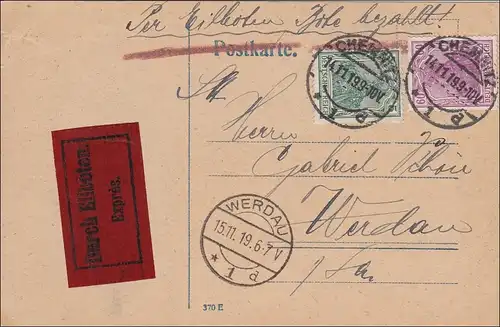 Per Eilboten Bote bezahlt!
Postkarte.
CHEMNITZ
14.11.19.9-10V
P 1
CHEMNITZ
14.11.19.9-10V
P 1
60
Herrn
Gabriel Schön
Werdau
i/Sa.
Durch Eilboten.
Exprès.
WERDAU
15.11.19.6-7V
* 1 d
370 E